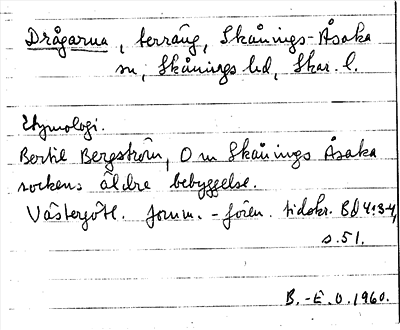 Drågarna, terräng, Skånings-Åsaka
sn, Skånings hd, Skar. l.
Etymologi.
Bertil Bergström, Om Skånings Åsaka
sockens äldre bebyggelse.
Västergötl. fornm.-fören. tidskr. Bd 4:3-4,
s. 51.
B.-E. O. 1960.